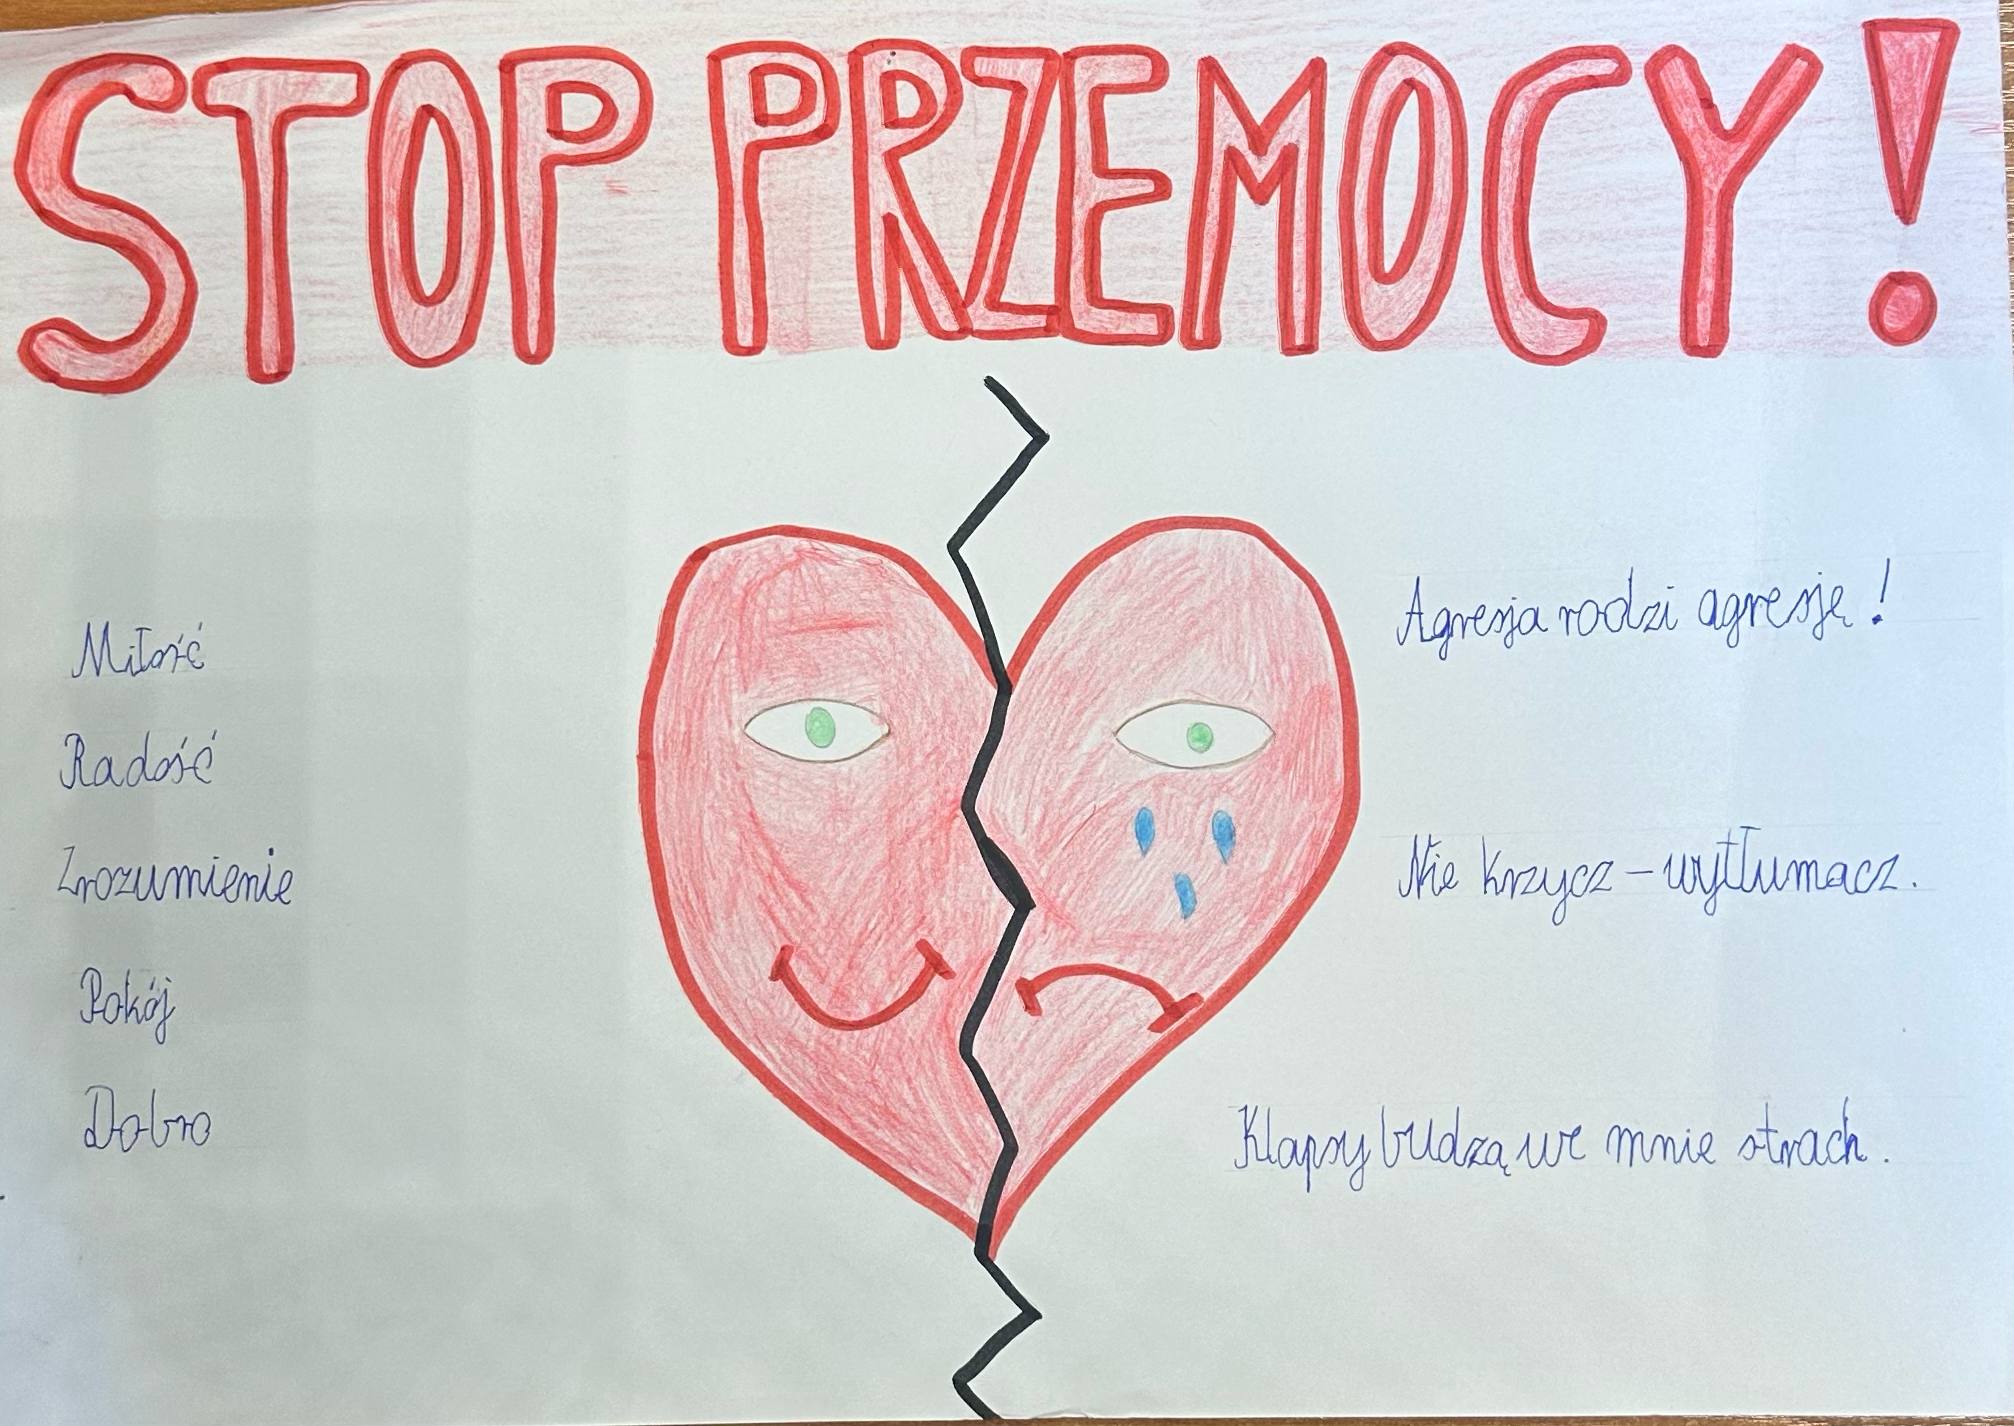 STOP PRZEMOCY!
Miłość
Radość
Zrozumienie
Pokój
Dobro
Agresja rodzi agresję!
Nie krzycz – wytłumacz.
Klapsy budzą we mnie strach.